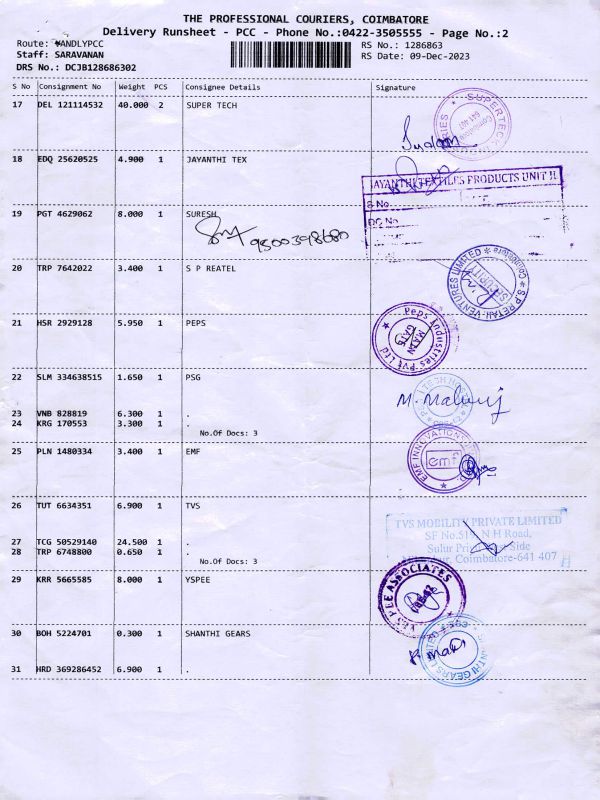 THE PROFESSIONAL COURIERS, COIMBATORE
Delivery Runsheet - PCC - Phone No.:0422-3505555 - Page No.:2
Route: VANDLYPCC RS No.: 1286863
Staff: SARAVANAN RS Date: 09-Dec-2023
DRS No.: DCJB128686302
S No Consignment No Weight PCS Consignee Details Signature
17 DEL 121114532 40.000 2 SUPER TECH
SUPERTECH
Coimbatore
641 407
18 EDQ 25620525 4.900 1 JAYANTHI TEX
JAYANTHI TEXTILES PRODUCTS UNIT II
19 PGT 4629062 8.000 1 SURESH
9500398680
20 TRP 7642022 3.400 1 S P REATEL
S.P RETAIL VENTURES LIMITED
Coimbatore
21 HSR 2929128 5.950 1 PEPS
Peps Industries Pvt Ltd
MAIN
GATE
22 SLM 334638515 1.650 1 PSG
23 VNB 828819 6.300 1 .
24 KRG 170553 3.300 1 .
No.Of Docs: 3
25 PLN 1480334 3.400 1 EMF
EMF INNOVATIONS
emf
26 TUT 6634351 6.900 1 TVS
TVS MOBILITY PRIVATE LIMITED
N.H Road,
Sulur
Side
Coimbatore-641 407
27 TCG 50529140 24.500 1 .
28 TRP 6748800 0.650 1 .
No.Of Docs: 3
29 KRR 5665585 8.000 1 YSPEE
PEE ASSOCIATES
30 BOH 5224701 0.300 1 SHANTHI GEARS
SHANTHI GEARS LIMITED
31 HRD 369286452 6.900 1 .